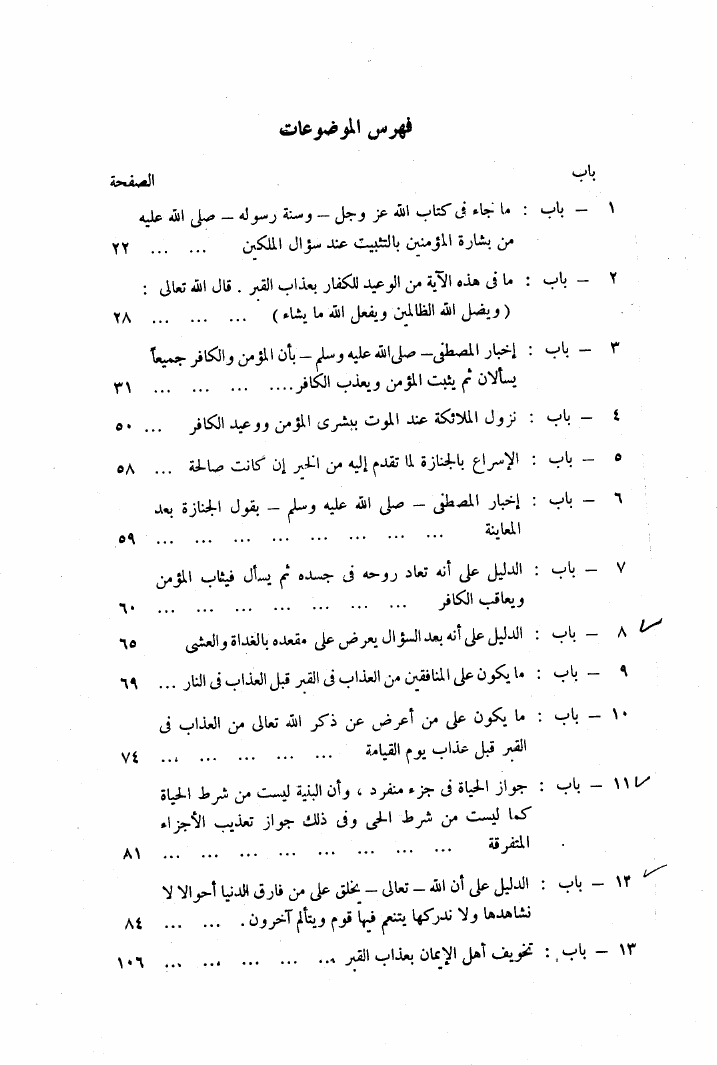 فهرس الموضوعات
باب
الصفحة
١ – باب : ما جاء فى كتاب الله عز وجل – وسنة رسوله – صلى الله عليه
من بشارة المؤمنين بالتثبيت عند سؤال الملكين ... ... ٢٢
٢ – باب : ما فى هذه الآية من الوعيد للكفار بعذاب القبر . قال الله تعالى :
( ويضل الله الظالمين ويفعل الله ما يشاء ) ... ... ... ٢٨
٣ – باب : إخبار المصطفى – صلى الله عليه وسلم – بأن المؤمن والكافر جميعاً
يسألان ثم يثبت المؤمن ويعذب الكافر.... ... ... ... ٣١
٤ – باب : نزول الملائكة عند الموت ببشرى المؤمن ووعيد الكافر ... ٥٠
٥ – باب : الإسراع بالجنازة لما تقدم إليه من الخير إن كانت صالحة ... ٥٨
٦ – باب : إخبار المصطفى – صلى الله عليه وسلم – بقول الجنازة بعد
المعاينة ... ... ... ... ... ... ... ... ٥٩
٧ – باب : الدليل على أنه تعاد روحه فى جسده ثم يسأل فيثاب المؤمن
ويعاقب الكافر ... ... ... ... ... ... ... ٦٠
٨ – باب : الدليل على أنه بعد السؤال يعرض على مقعده بالغداة والعشى ٦٥
٩ – باب : ما يكون على المنافقين من العذاب فى القبر قبل العذاب فى النار ... ٦٩
١٠ – باب : ما يكون على من أعرض عن ذكر الله تعالى من العذاب فى
القبر قبل عذاب يوم القيامة ... ... ... ... ... ٧٤
١١ – باب : جواز الحياة فى جزء منفرد ، وأن البنية ليست من شرط الحياة
كما ليست من شرط الحى وفى ذلك جواز تعذيب الأجزاء
المتفرقة ... ... ... ... ... ... ... ... ٨١
١٢ – باب : الدليل على أن الله – تعالى – يخلق على من فارق الدنيا أحوالا لا
نشاهدها ولا ندركها يتنعم فيها قوم ويتألم آخرون. ... ... ... ٨٤
١٣ – باب : تخويف أهل الإيمان بعذاب القبر ... ... ... ... ... ١٠٦